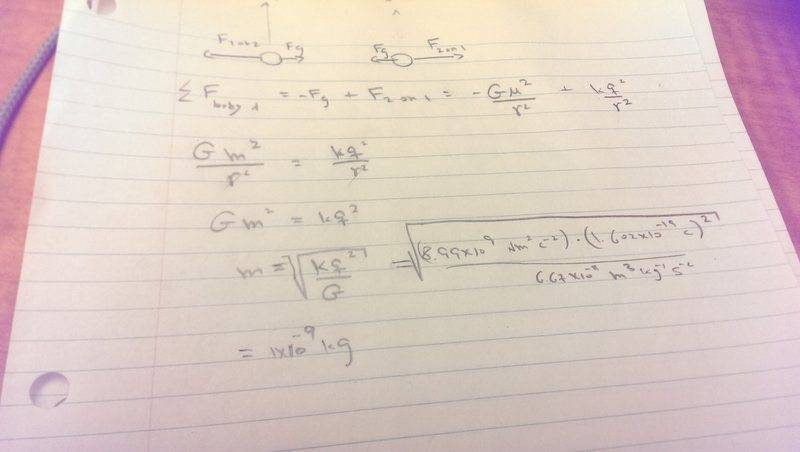 F1on2 Fg Fg F2on1
Σ F body 1 = -Fg + F2on1 = - GM²/r² + kq²/r²
Gm²/r² = kq²/r²
Gm² = kq²
m = √(kq²/G) = √((8.99x10⁹ Nm²c⁻²)·(1.602x10⁻¹⁹ c)²/6.67x10⁻¹¹ m³kg⁻¹s⁻²)
= 1x10⁻⁹ kg